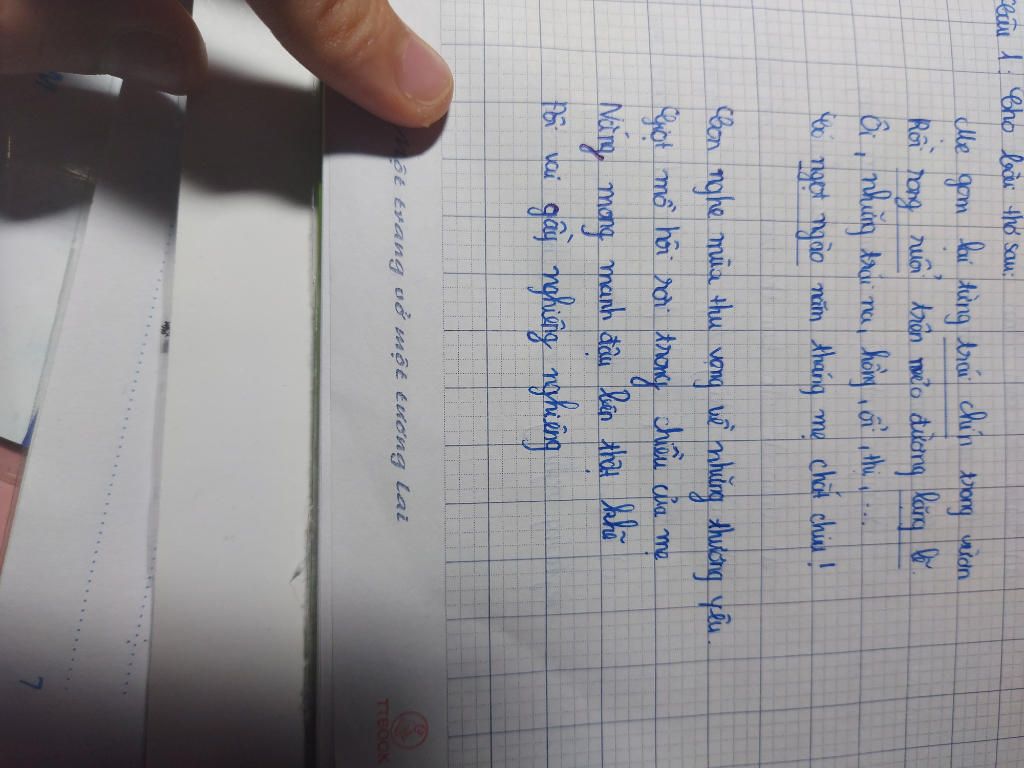 Câu 1: Cho bài thơ sau:
Mẹ gom lại từng trái chín trong vườn
Rồi rong ruổi trên nẻo đường lặng lẽ
Ôi, những trái na, hồng, ổi, thị,...
Có ngọt ngào năm tháng mẹ chắt chiu!
Con nghe mùa thu vọng về những thương yêu
Giọt mồ hôi rơi trong chiều của mẹ
Nắng mong manh đậu bên thật khẽ
Đôi vai gầy nghiêng nghiêng
một trang vở một tương lai
TTECCK
7